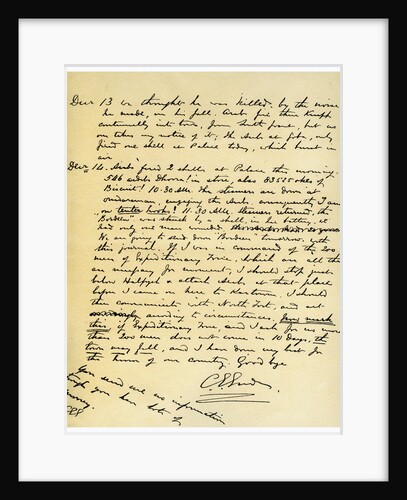 Decr 13 We thought he was killed, by the noise
he made, in his fall. Arabs fire their Krupps
continually into town, from South front, but no
one takes any notice of it, The Arabs at Goba, only
fired one shell at Palace today, which burst in
air
Decr 14. Arabs fired 2 shells at Palace this morning.
546 ardebs Dhoora! in store, also 83525 okes of
Biscuit! 10.30 AM. The steamers are down at
Omdurman, engaging the Arabs, consequently I am
"on tenter hooks! 11.30 AM. Steamers returned, the
Bordeen was struck by a shell, in her battery, we
had only one man wounded.
We are going to send down Bordeen tomorrow with
this journal. If I was in command of the 200
men of Expeditionary Force, which are all that
are necessary for movement, I should stop just
below Halfeyeh & attack Arabs, at that place
before I came on here to Kartoum, I should
then communicate with North Fort, and act
according to circumstances, Now mark
this, if Expeditionary Force, and I ask for no more
than 200 men does not come in 10 Days, the
town may fall, and I have done my best for
the honor of our country. Good bye
C G Gordon
You send me no information
though you have lots of
money. CGG